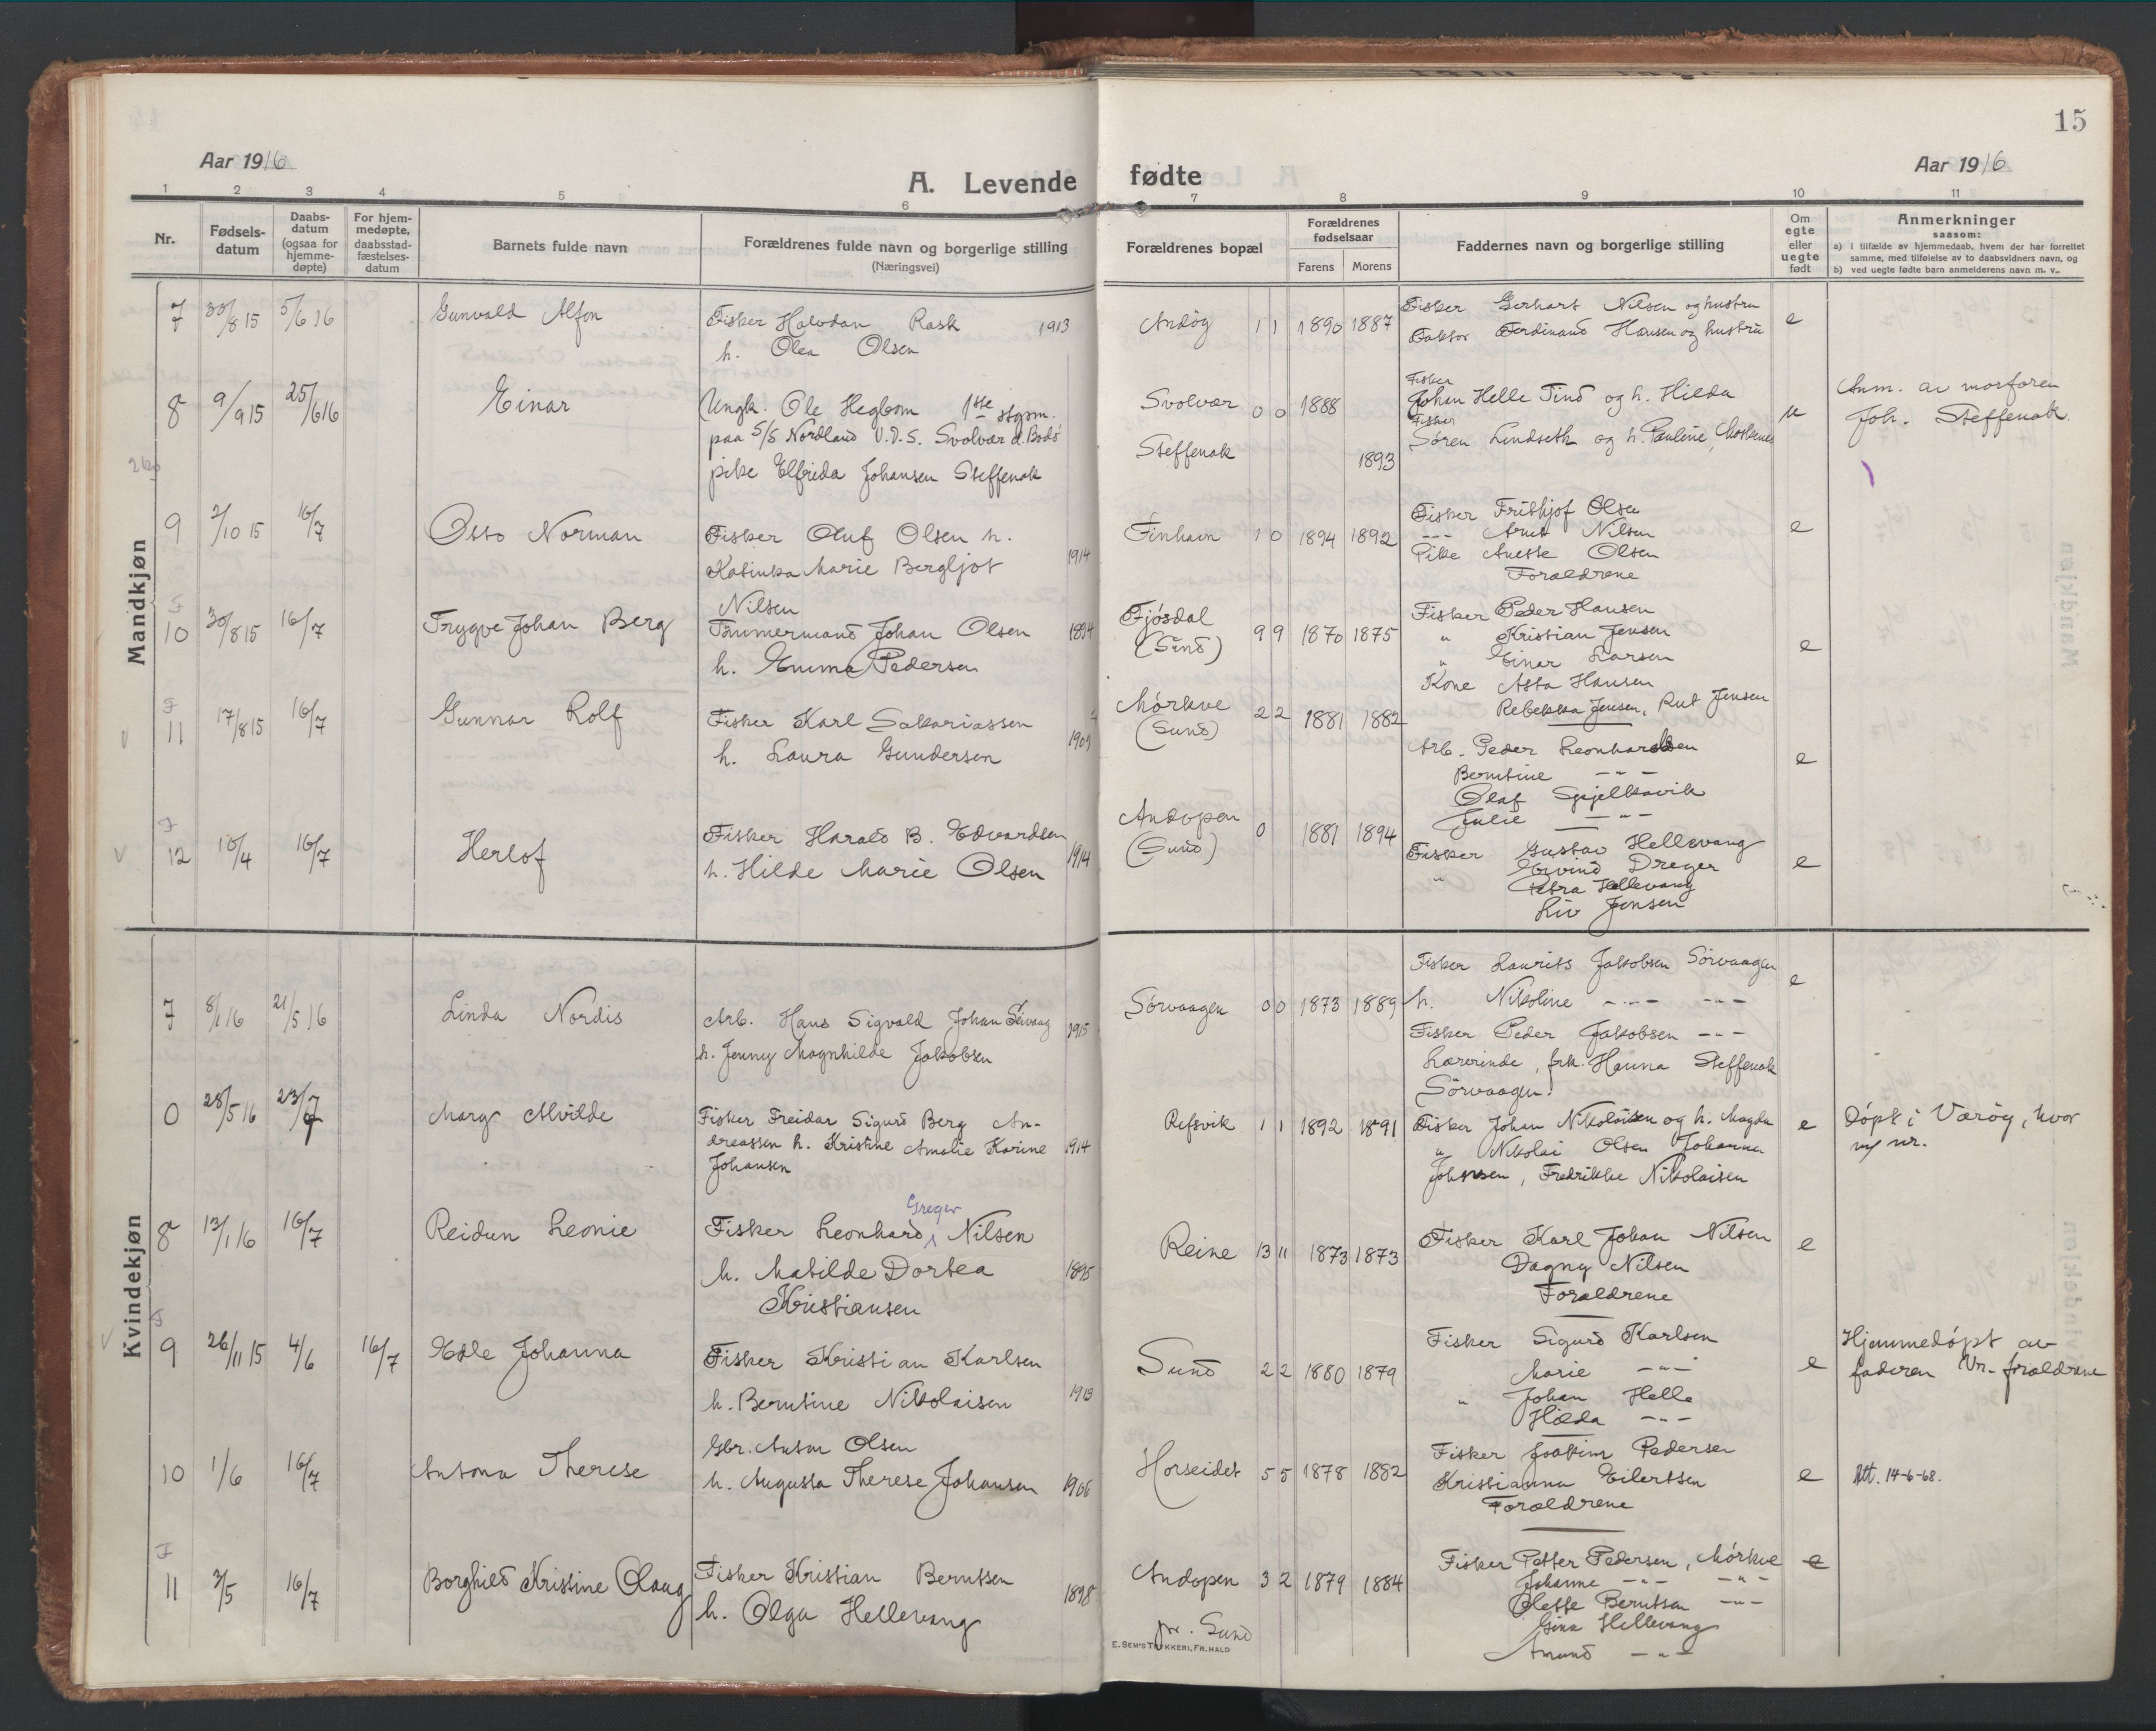 15
Aar 1916
A. Levende fødte
Aar 1916
1 2 3 4 5 6 7 8 9 10 11
Nr.
Fødsels-
datum
Daabs-
datum
(ogsaa for
hjemme-
døpte)
For hjem-
medøpte,
daabsstad-
fæstelses-
datum
Barnets fulde navn
Forældrenes fulde navn og borgerlige stilling
(Næringsvei)
Forældrenes bopæl
Forældrenes
fødselsaar
Farens Morens
Faddernes navn og borgerlige stilling
Om
egte
eller
uegte
født
Anmerkninger
saasom:
a) i tilfælde av hjemmedaab, hvem der har forrettet
samme, med tilføielse av to daabsvidners navn, og
b) ved uegte fødte barn anmelderens navn m. v.
Mandkjøn
7 30/8 15 5/6 16 Gunvald Alfon
Fisker Halvdan Rask 1913
h. Olea Olsen
Andøg 1 1 1890 1887
Fisker Gerhart Nilsen og hustru
Faktor Ferdinand Hansen og hustru
e
8 9/9 15 25/6 16 Einar
Ungk. Ole Hegbom 1ste stgsm.
paa S/S Nordland V.D.S. Svolvær d. Bodø
pike Elfrida Johansen Steffenak
Svolvær 0 0 1888
Steffenak 1893
Fisker
Johan Helle Tind og h. Hilda
Fisker
Søren Lindseth og h. Pauline, Moskenes
u
Anm. av morfaren
Joh. Steffenak.
9 2/10 15 16/7 Otto Norman
Fisker Oluf Olsen h.
Katinka Marie Bergljot 1914
Nilsen
Finhavn 1 0 1894 1892
Fisker Frithjof Olsen
--- Arnt Nilsen
Pike Anette Olsen
Forældrene
e
F
10 30/8 15 16/7 Trygve Johan Berg
Tømmermand Johan Olsen 1894
h. Emma Pedersen
Fjøsdal
(Sund)
9 9 1870 1875
Fisker Peder Hansen
" Kristian Jensen
" Einar Larsen
Kone Asta Hansen
Rebekka Jensen, Rut Jensen
e
F
11 17/8 15 16/7 Gunnar Rolf
Fisker Karl Sakariassen
h. Laura Gundersen 1909
Mørkve
(Sund)
2 2 1881 1882
Arb. Peder Leonhardsen
Berntine -"-
Olaf Spjelkavik
Julie -"-
e
F
12 16/4 16/7 Herlof
Fisker Harald B. Edvardsen
h. Hilde Marie Olsen 1914
Andopen
(Sund)
0 1881 1894
Fisker Gustav Hellevang
" Eivind Dreyer
Petra Hellevang
Liv Jensen
e
Kvindekjøn
7 8/1 16 21/5 16 Linda Nordis
Arb. Hans Sigvald Johan Seivaag 1915
h. Jenny Magnhilde Jakobsen
Sørvaagen 0 0 1873 1889
Fisker Laurits Jakobsen Sørvaagen
h. Nikoline -"- -"-
Fisker Peder Jakobsen -"-
Lærerinde, frk. Hanna Steffenak
Sørvaagen.
e
0 28/5 16 23/7 Marg Alvilde
Fisker Freidar Sigurd Berg An-
dreassen h. Kristine Amalie Karine 1914
Johansen
Refsvik 1 1 1892 1891
Fisker Johan Nikolaisen og h. Magda
" Nikolai Olsen Johanna
Johnsen, Fredrikke Nikolaisen
e
Døpt i Værøy, hvor
m/ nr.
8 13/1 16 16/7 Reidun Leonie
Greger
Fisker Leonhard Nilsen
h. Matilde Dortea 1895
Kristiansen
Reine 13 11 1873 1873
Fisker Karl Johan Nilsen
Dagny Nilsen
Forældrene
e
F
9 26/11 15 4/6 16/7 Edle Johanna
Fisker Kristian Karlsen
h. Berntine Nikolaisen 1913
Sund 2 2 1880 1879
Fisker Sigurd Karlsen
Marie -"-
" Johan Helle
Hilda -"-
e
Hjemmedøpt av
faderen Vn. forældrene
10 1/6 16/7 Antona Therese
Gbr. Anton Olsen
h. Augusta Therese Johansen 1906
Horseidet 5 5 1878 1882
Fisker Joakim Pedersen
Kristianna Eilertsen
Forældrene
e
Att. 14-6-68.
F
11 3/5 16/7 Borghild Kristine Olaug
Fisker Kristian Berntsen 1898
h. Olga Hellevang
Andopen 3 2 1879 1884
pr. Sund
Fisker Petter Pedersen, Mørkve
Johanne -"- -"-
Olette Berntsen -"-
Gina Hellevang
Amund -"-
e
E. SEM'S TRYKKERI, FR.HALD